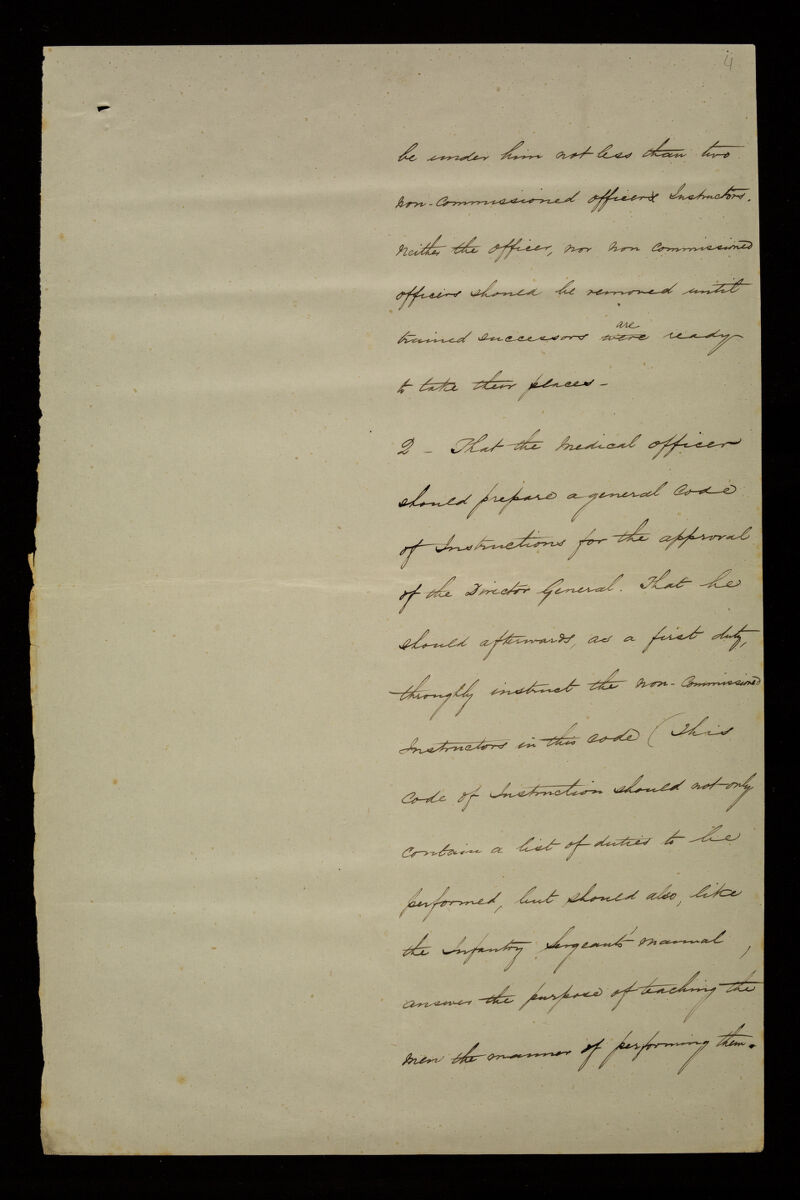 4
be under him not less than two
non-commissioned officers Instructors.
Neither the officer, nor non commissioned
officers should be removed until
are
trained successors were ready
to take their places-
2 - That the Medical officer
should prepare a general Code
of Instructions for the approval
of the Director General. That he
should afterwards, as a first duty,
throughly instruct the non-Commissioned
Instructors in this code (This
Code of Instruction should not only
contain a list of duties to be
performed, but should also, like
the Infantry Sergeants' manual,
answer the purpose of teaching the
men the manner of performing them.